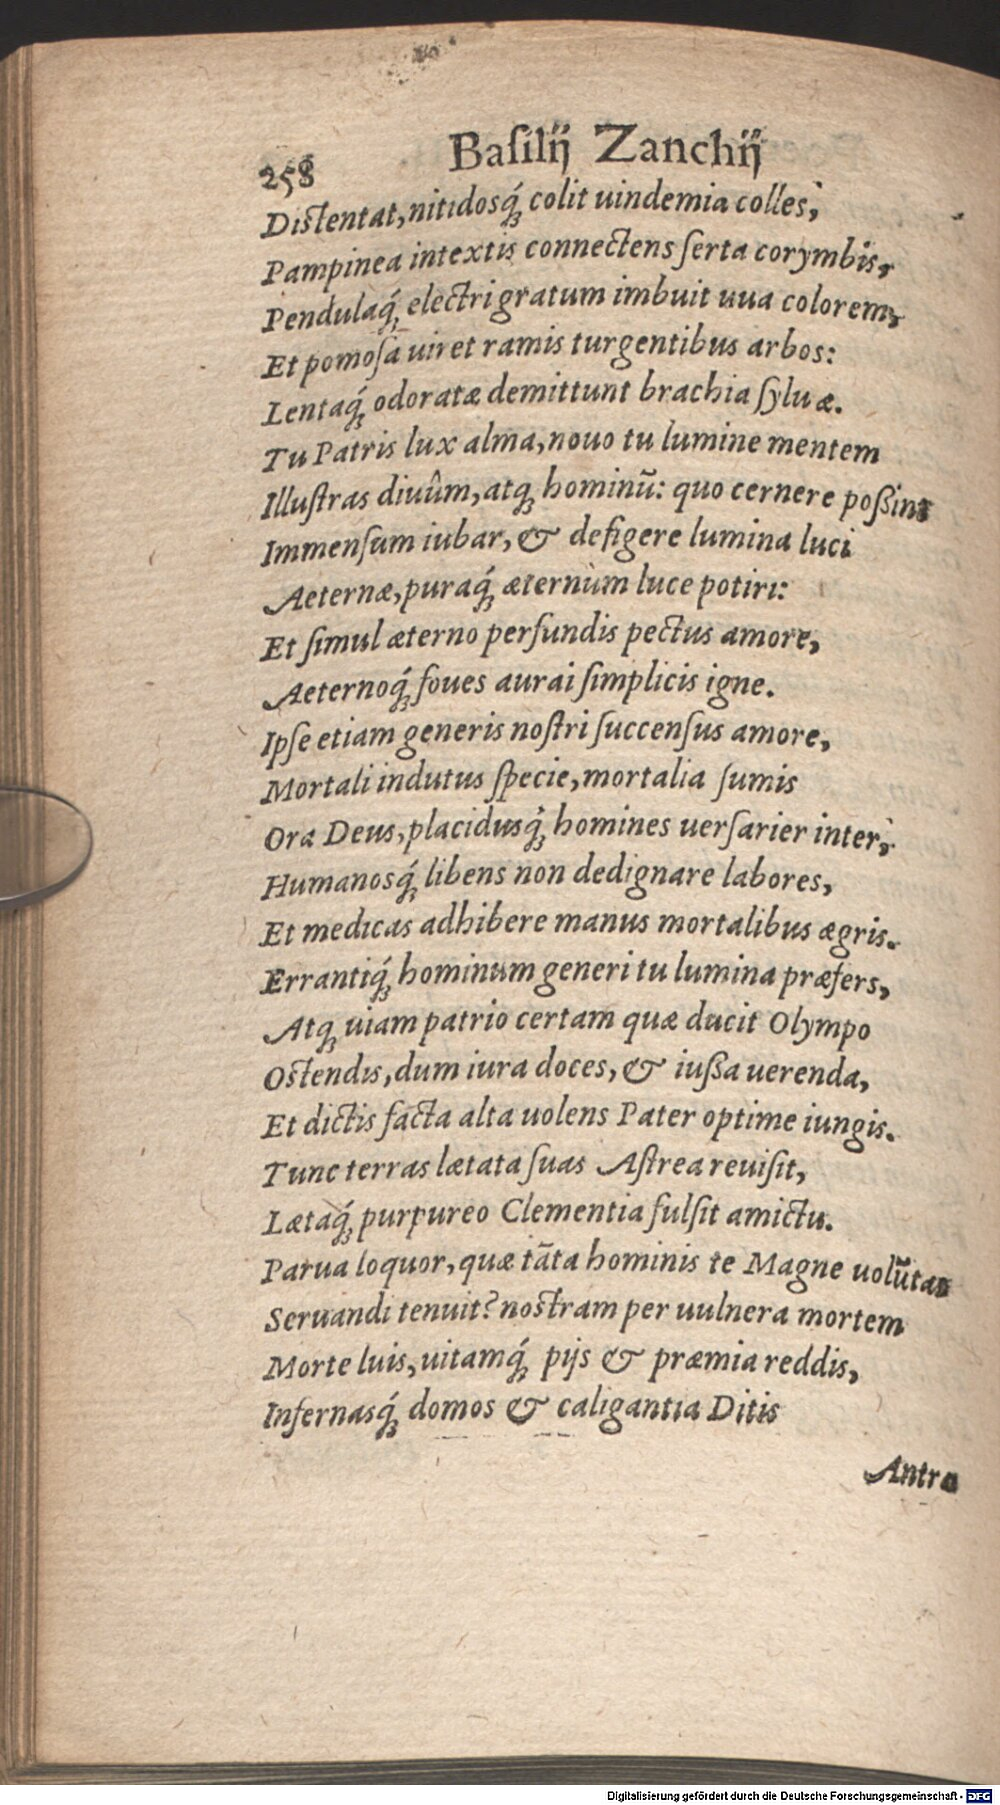 258 Baſilij Zanchij
Diſtentat, nitidosq́; colit uindemia colles,
Pampinea intextis connectens ſerta corymbis,
Pendulaq́; electri gratum imbuit uua colorem,
Et pomoſa uiret ramis turgentibus arbos:
Lentaq́; odoratæ demittunt brachia ſyluæ.
Tu Patris lux alma, nouo tu lumine mentem
Illuſtras diuûm, atq; hominū: quo cernere poßint
Immenſum iubar, & defigere lumina luci
Aeternæ, puraq́; æternùm luce potiri:
Et ſimul æterno perfundis pectus amore,
Aeternoq́; foues aurai ſimplicis igne.
Ipſe etiam generis noſtri ſuccenſus amore,
Mortali indutus ſpecie, mortalia ſumis
Ora Deus, placidusq́; homines uerſarier inter,
Humanosq́; libens non dedignare labores,
Et medicas adhibere manus mortalibus ægris.
Errantiq́; hominum generi tu lumina præfers,
Atq; uiam patrio certam quæ ducit Olympo
Oſtendis, dum iura doces, & iußa uerenda,
Et dictis facta alta uolens Pater optime iungis.
Tunc terras lætata ſuas Aſtrea reuiſit,
Lætaq́; purpureo Clementia fulſit amictu.
Parua loquor, quæ tāta hominis te Magne uolūtas
Seruandi tenuit? noſtram per uulnera mortem
Morte luis, uitamq́; pijs & præmia reddis,
Infernasq́; domos & caligantia Ditis
Antra
Digitalisierung gefördert durch die Deutsche Forschungsgemeinschaft - DFG